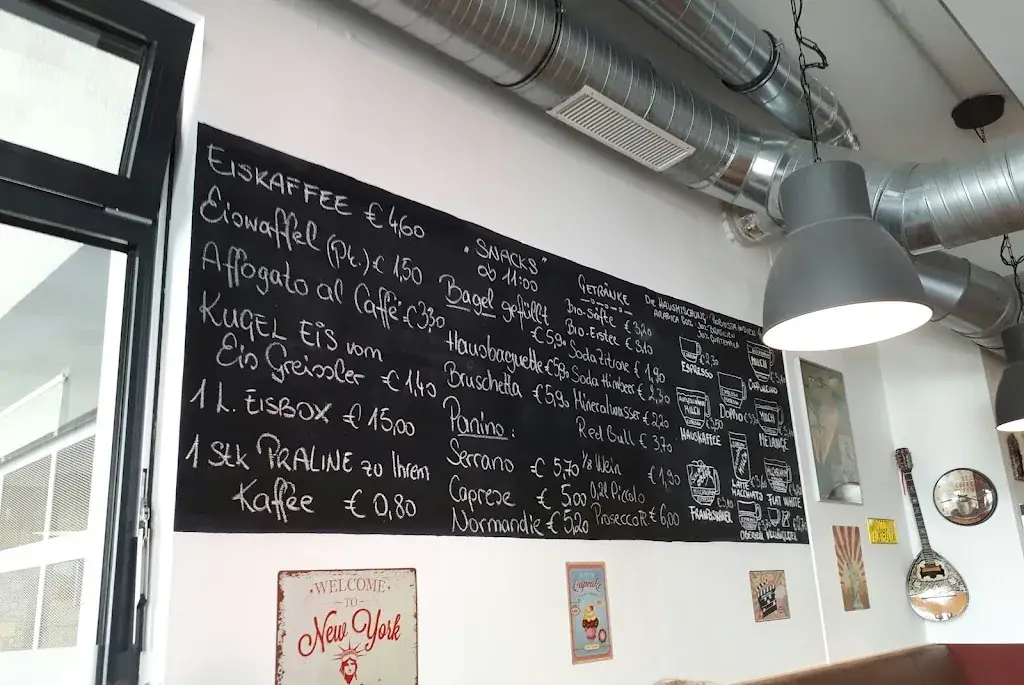 EISKAFFEE € 4,60
Eiswaffel (Pt.) € 1,50
Affogato al Caffé € 3,30
KUGEL EIS vom
Eis Greissler € 1,40
1 L. EISBOX € 15,00
1 Stk PRALINE zu Ihrem
Kaffee € 0,80
"SNACKS"
ab 11:00
Bagel gefüllt
€ 5,90
Hausbaguette € 5,80
Bruschetta € 5,90
Panino:
Serrano € 5,70
Caprese € 5,00
Normandie € 5,20
GETRÄNKE
Bio-Säfte € 3,20
Bio-Eistee € 3,10
Soda Zitrone € 1,90
Soda Himbeer € 2,30
Mineralwasser € 2,20
Red Bull € 3,70
1/8 Wein € 1,90
0,2l Piccolo
Prosecco € 6,00
DIE HAUSMISCHUNG:
ESPRESSO
CAPPUCCINO
MILCH
HAUSKAFFEE
MILCH
MELANGE
LATTE
MACCHIATO
FLAT WHITE
FRANZISKANER
WELCOME
TO
New York
Cupcake